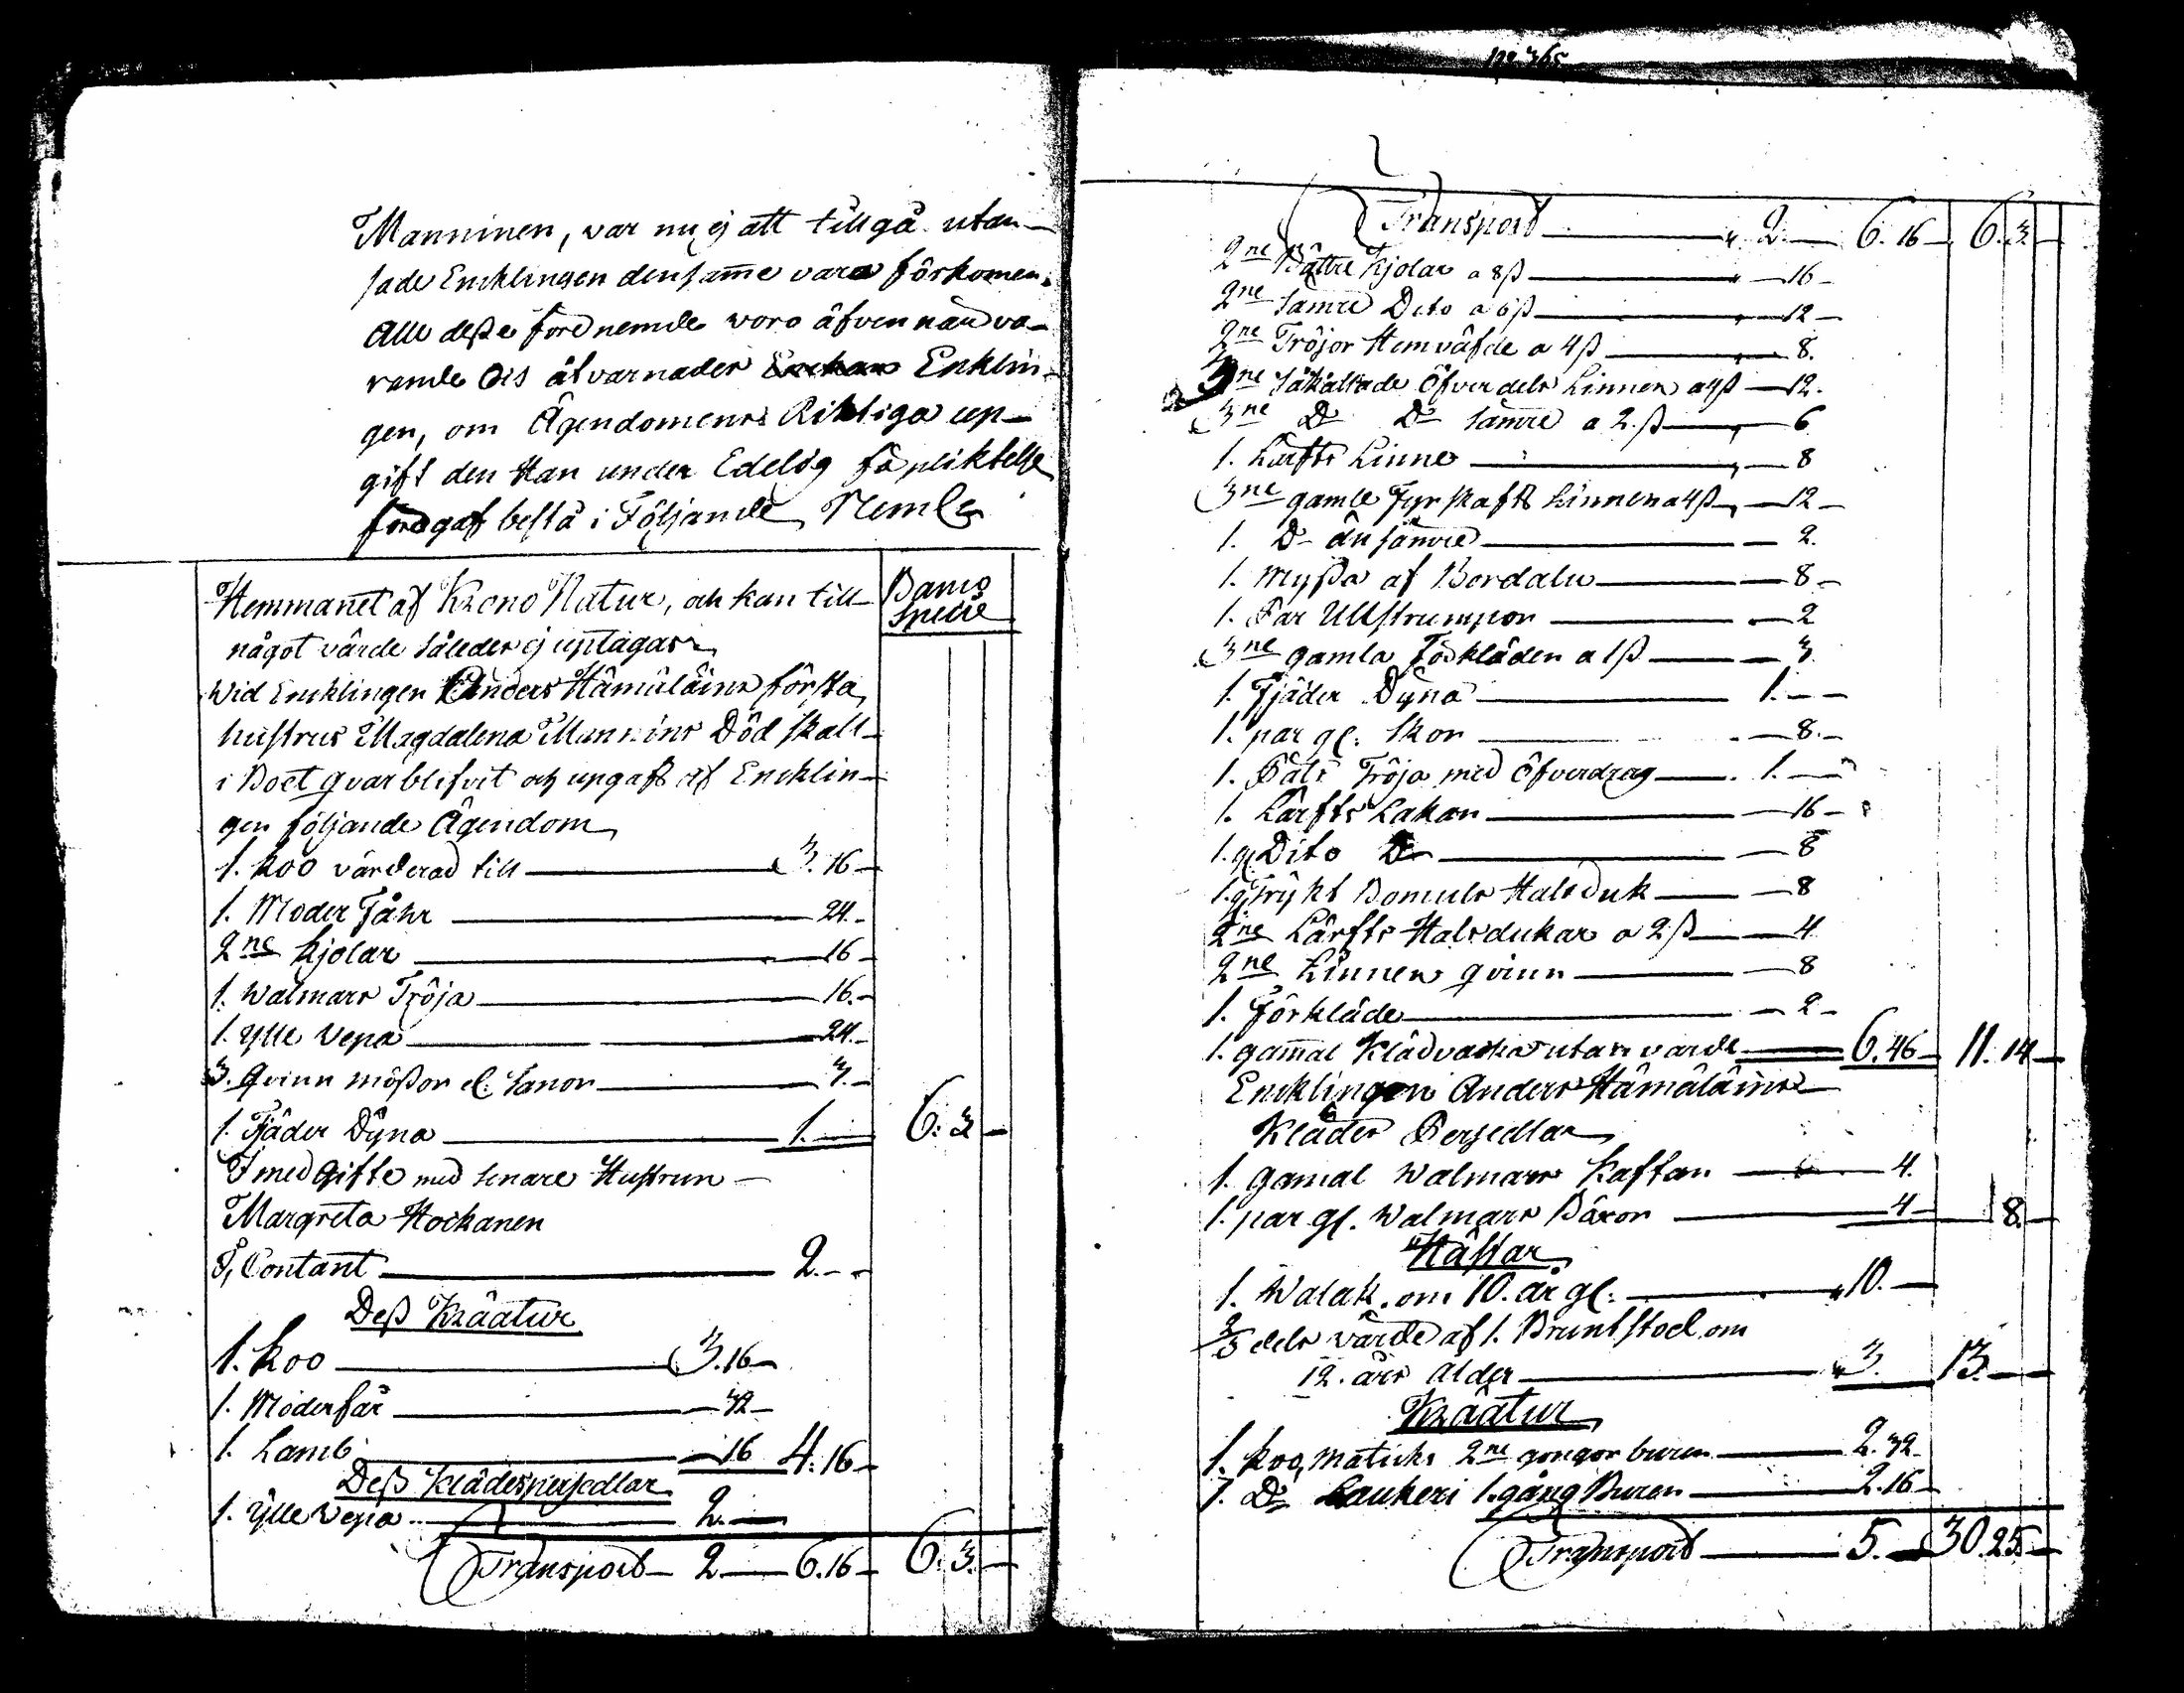 Manninen, var nu ej att tillgå utan-
sade Encklingen densam̄e vara förkomen.
Alle desze förenemde woro äfven närva-
rande Ock åtvarnades Enklin-
gen, om Ägendomens Riktiga up-
gift den Han under Edelig förpliktelse
föregaf bestå i Följande, Neml:
Hemmanet af Krono Natur, och kan till
något värde således ej uptagas
Banco
Specie
Wid Encklingen Anders Hämäläins första
hustrus Magdalena Mannins Död skall
i Boet qvarblifvit och upgaft af Encklin-
gen följande Ägendom
1. Koo värderad till 3. 16
1. Moder Fåhr 24.
2ne Kjolar 16
1. Walmars Tröja 16.
1. Ylle Vepa 24.
3. Qvinn mößor el: Sanor 3.
1. Fjäder Dyna 1. 6. 3
I medgifte med senare Hustrun
Margreta Hockanen
I, Contant 2.
Deß Kräatur
1. Koo 3. 16
1. Moderfår 32
1. Lamb 16 4. 16
Deß Klädespersedlar
1. Ylle Vepa 2.
Transport 2 6. 16 6. 3.
No 365
Transport 2. 6. 16 6. 3.
2ne Bättre Kjolar a 8ß 16
2ne Samre Dito a 6ß 12
2ne Tröjor Hemväfde a 4ß 8.
3ne Såkallade Öfverdels Linnen a 4ß 12.
3ne Do Do Samre a 2.ß 6
1. Lärfts Linne 8
3ne gamle Fyrskafts Linnen a 4ß 12
1. Do än sämre 2.
1. Myßa af Bordalu 8
1. Par Ullstrumpor 2
3ne gamla Förkläden a 1ß 3
1. Fjäder Dyna 1.
1. par gl. Skor 8.
1. Päls Tröja med Öfverdrag 1.
1. Lärfts Lakan 16
1. gl Dito Do 8
1. gl Trykt Bomuls Halsduk 8
2ne Lärfts Halsdukar a 2ß 4
2ne Linnen qvinn 8
1. Förkläde 2
1. gam̄al Klädvaska utan värde 6. 46 11. 14
Encklingen Anders Hämäläins
Kläder Persedlar
1. gamal Walmars Kaftan 4.
1. par gl. Walmars Bäxor 4 8.
Hästar
1. Walak. om 10. år gl. 10.
2/3 dels värde af 1. Brunt stod om
12. års Ålder 3. 13.
Kräatur
1. Koo, Maticki 2ne gongor buren 2. 32
1. Do Laukeri 1. gång Buren 2. 16
Transport 5. 30. 25.